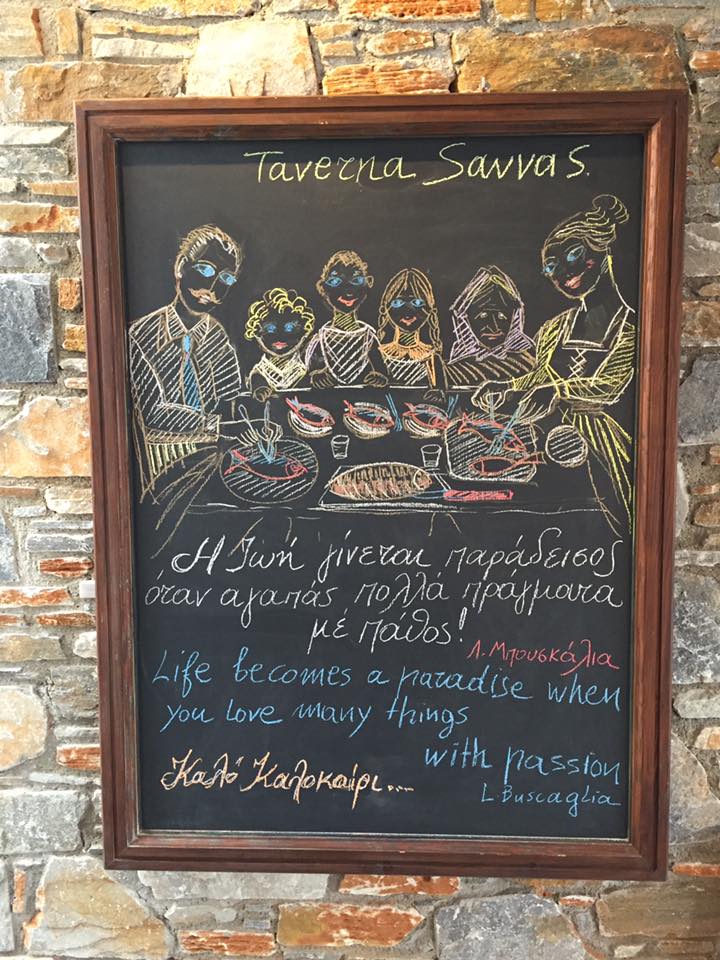 Taverna Savvas.
Η Ζωή γίνεται παράδεισος
όταν αγαπάς πολλά πράγματα
μέ πάθος!
Λ. Μπουσκάλια
Life becomes a paradise when
you love many things
with passion
L. Buscaglia
Καλό Καλοκαίρι...